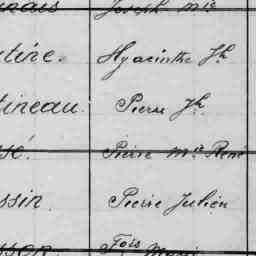 Joseph Mie
tire. Hyacinthe Jh
tineau. Pierre Jh.
sé. Pierre Mie René
ssin. Pierre Julien
sson Fois